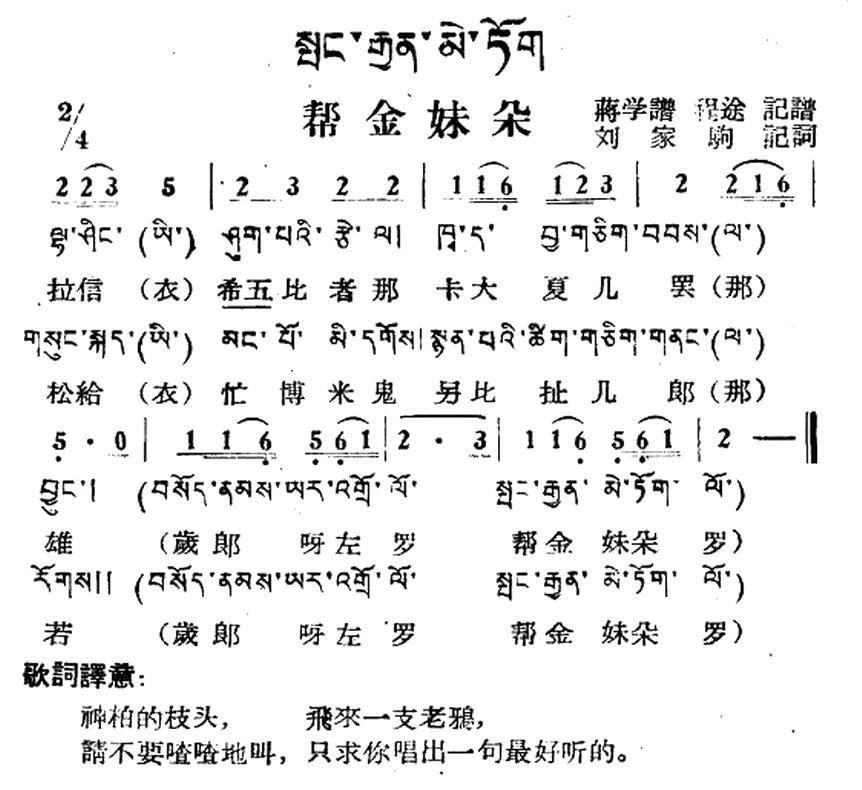 སྤང་རྒྱན་མེ་ཏོག
2/4
帮金妹朵
蔣学譜 程途 記譜
刘家駒 記詞
2 2 3 5 | 2 3 2 2 | 1 1 6 1 2 3 | 2 2 1 6 |
ལྷ་ཤིང་(ཡི་) ཤུག་པའི་རྩེ་ལ། ཁྭ་ད་ བྱ་གཅིག་བབས་(ལ་)
拉信（衣）希五比者那 卡大 夏几 罢（那）
གསུང་སྐད་(ཡི་) མང་པོ་ མི་དགོས། སྙན་པའི་ཚིག་གཅིག་གནང་(ལ་)
松給（衣）忙博米鬼 另比 扯几 郎（那）
5 · 0 | 1 1 6 5 6 1 | 2 · 3 | 1 1 6 5 6 1 | 2 — ‖
བྱུང་། (བསོད་ནམས་ཡར་འགྲོ་ལོ་ སྤང་རྒྱན་མེ་ཏོག་ལོ་)
雄 （歲郎 呀左罗 帮金 妹朵 罗）
རོགས།། (བསོད་ནམས་ཡར་འགྲོ་ལོ་ སྤང་རྒྱན་མེ་ཏོག་ལོ་)
若 （歲郎 呀左罗 帮金 妹朵 罗）
歌詞譯意：
神柏的枝头， 飛來一支老鴉，
請不要喳喳地叫，只求你唱出一句最好听的。